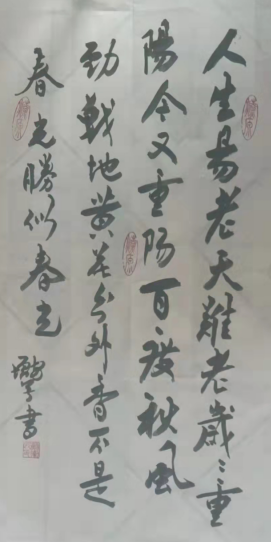 人生易老天難老歲〻重
陽今又重陽百度秋風
勁戰地黃花分外香不是
春光勝似春光
書